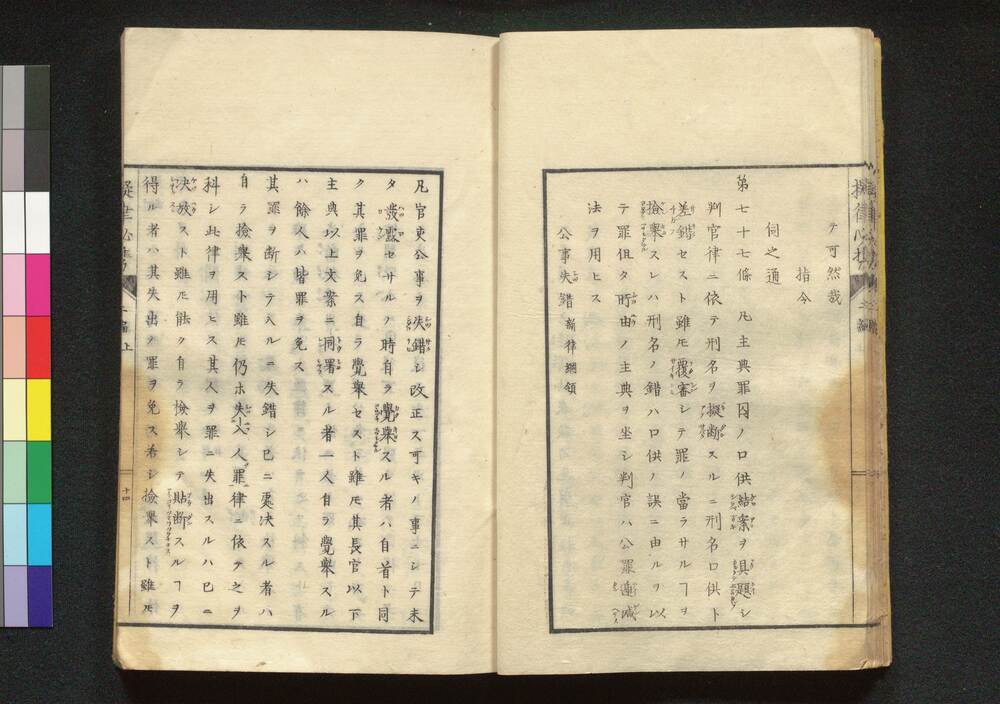 テ可然哉
指令
伺之通
第七十七條 凡主典罪囚ノ口供結案ヲ具題シ
判官律ニ依テ刑名ヲ擬断スルニ刑名口供ト
差錯セスト雖モ覆審シテ罪ノ當ラサルヿヲ
撿舉スレハ刑名ノ錯ハ口供ノ誤ニ由ルヲ以
テ罪但タ所由ノ主典ヲ坐シ判官ハ公罪逓减
法ヲ用ヒス
公事失錯 新律綱領
凡官吏公事ヲ失錯シ改正ス可キノ事ニシテ未
タ發露セサルノ時自ラ覺舉スル者ハ自首ト同
ク其罪ヲ免ス自ラ覺舉セスト雖モ其長官以下
主典以上文案ニ同署スル者一人自ラ覺舉スル
ハ餘人ハ皆罪ヲ免ス
其罪ヲ断シテ入ルニ失錯シ已ニ處决スル者ハ
自ラ撿舉スト雖モ仍ホ失入人罪律ニ依テ之ヲ
科シ此律ヲ用ヒス其人ヲ罪ニ失出スルハ已ニ
决放スト雖モ能ク自ラ撿舉シテ貼断スルヿヲ
得ル者ハ其失出ノ罪ヲ免ス若シ撿舉スト雖モ
十四